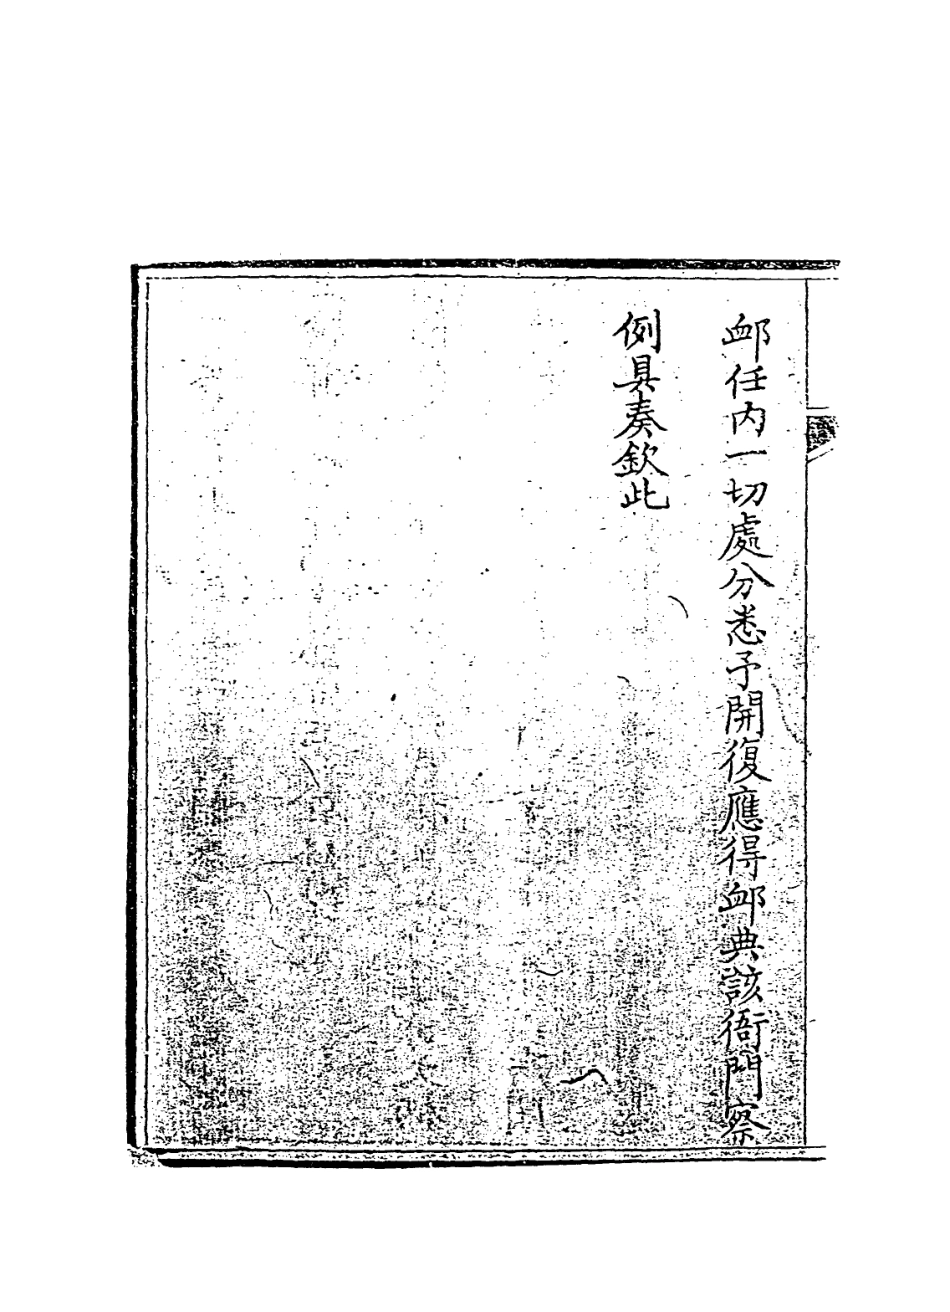 卹任內一切處分悉予開復應得卹典該衙門察
例具奏欽此